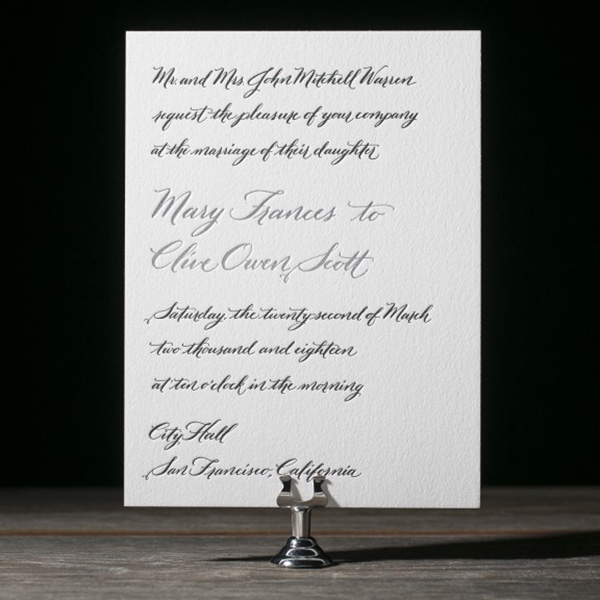 Mr. and Mrs. John Mitchell Warren
request the pleasure of your company
at the marriage of their daughter
Mary Frances to
Clive Owen Scott
Saturday, the twenty second of March
two thousand and eighteen
at ten o'clock in the morning
City Hall
San Francisco, California